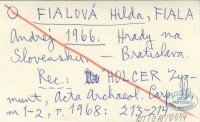 FIALOVÁ Hilda, FIALA
Andrej 1966. Hrady na
Slovensku — Bratislava.
Rec.: HOLCER Zyg-
munt, Acta Archaeol. Carp.
m 1-2, r. 1968: 213-214